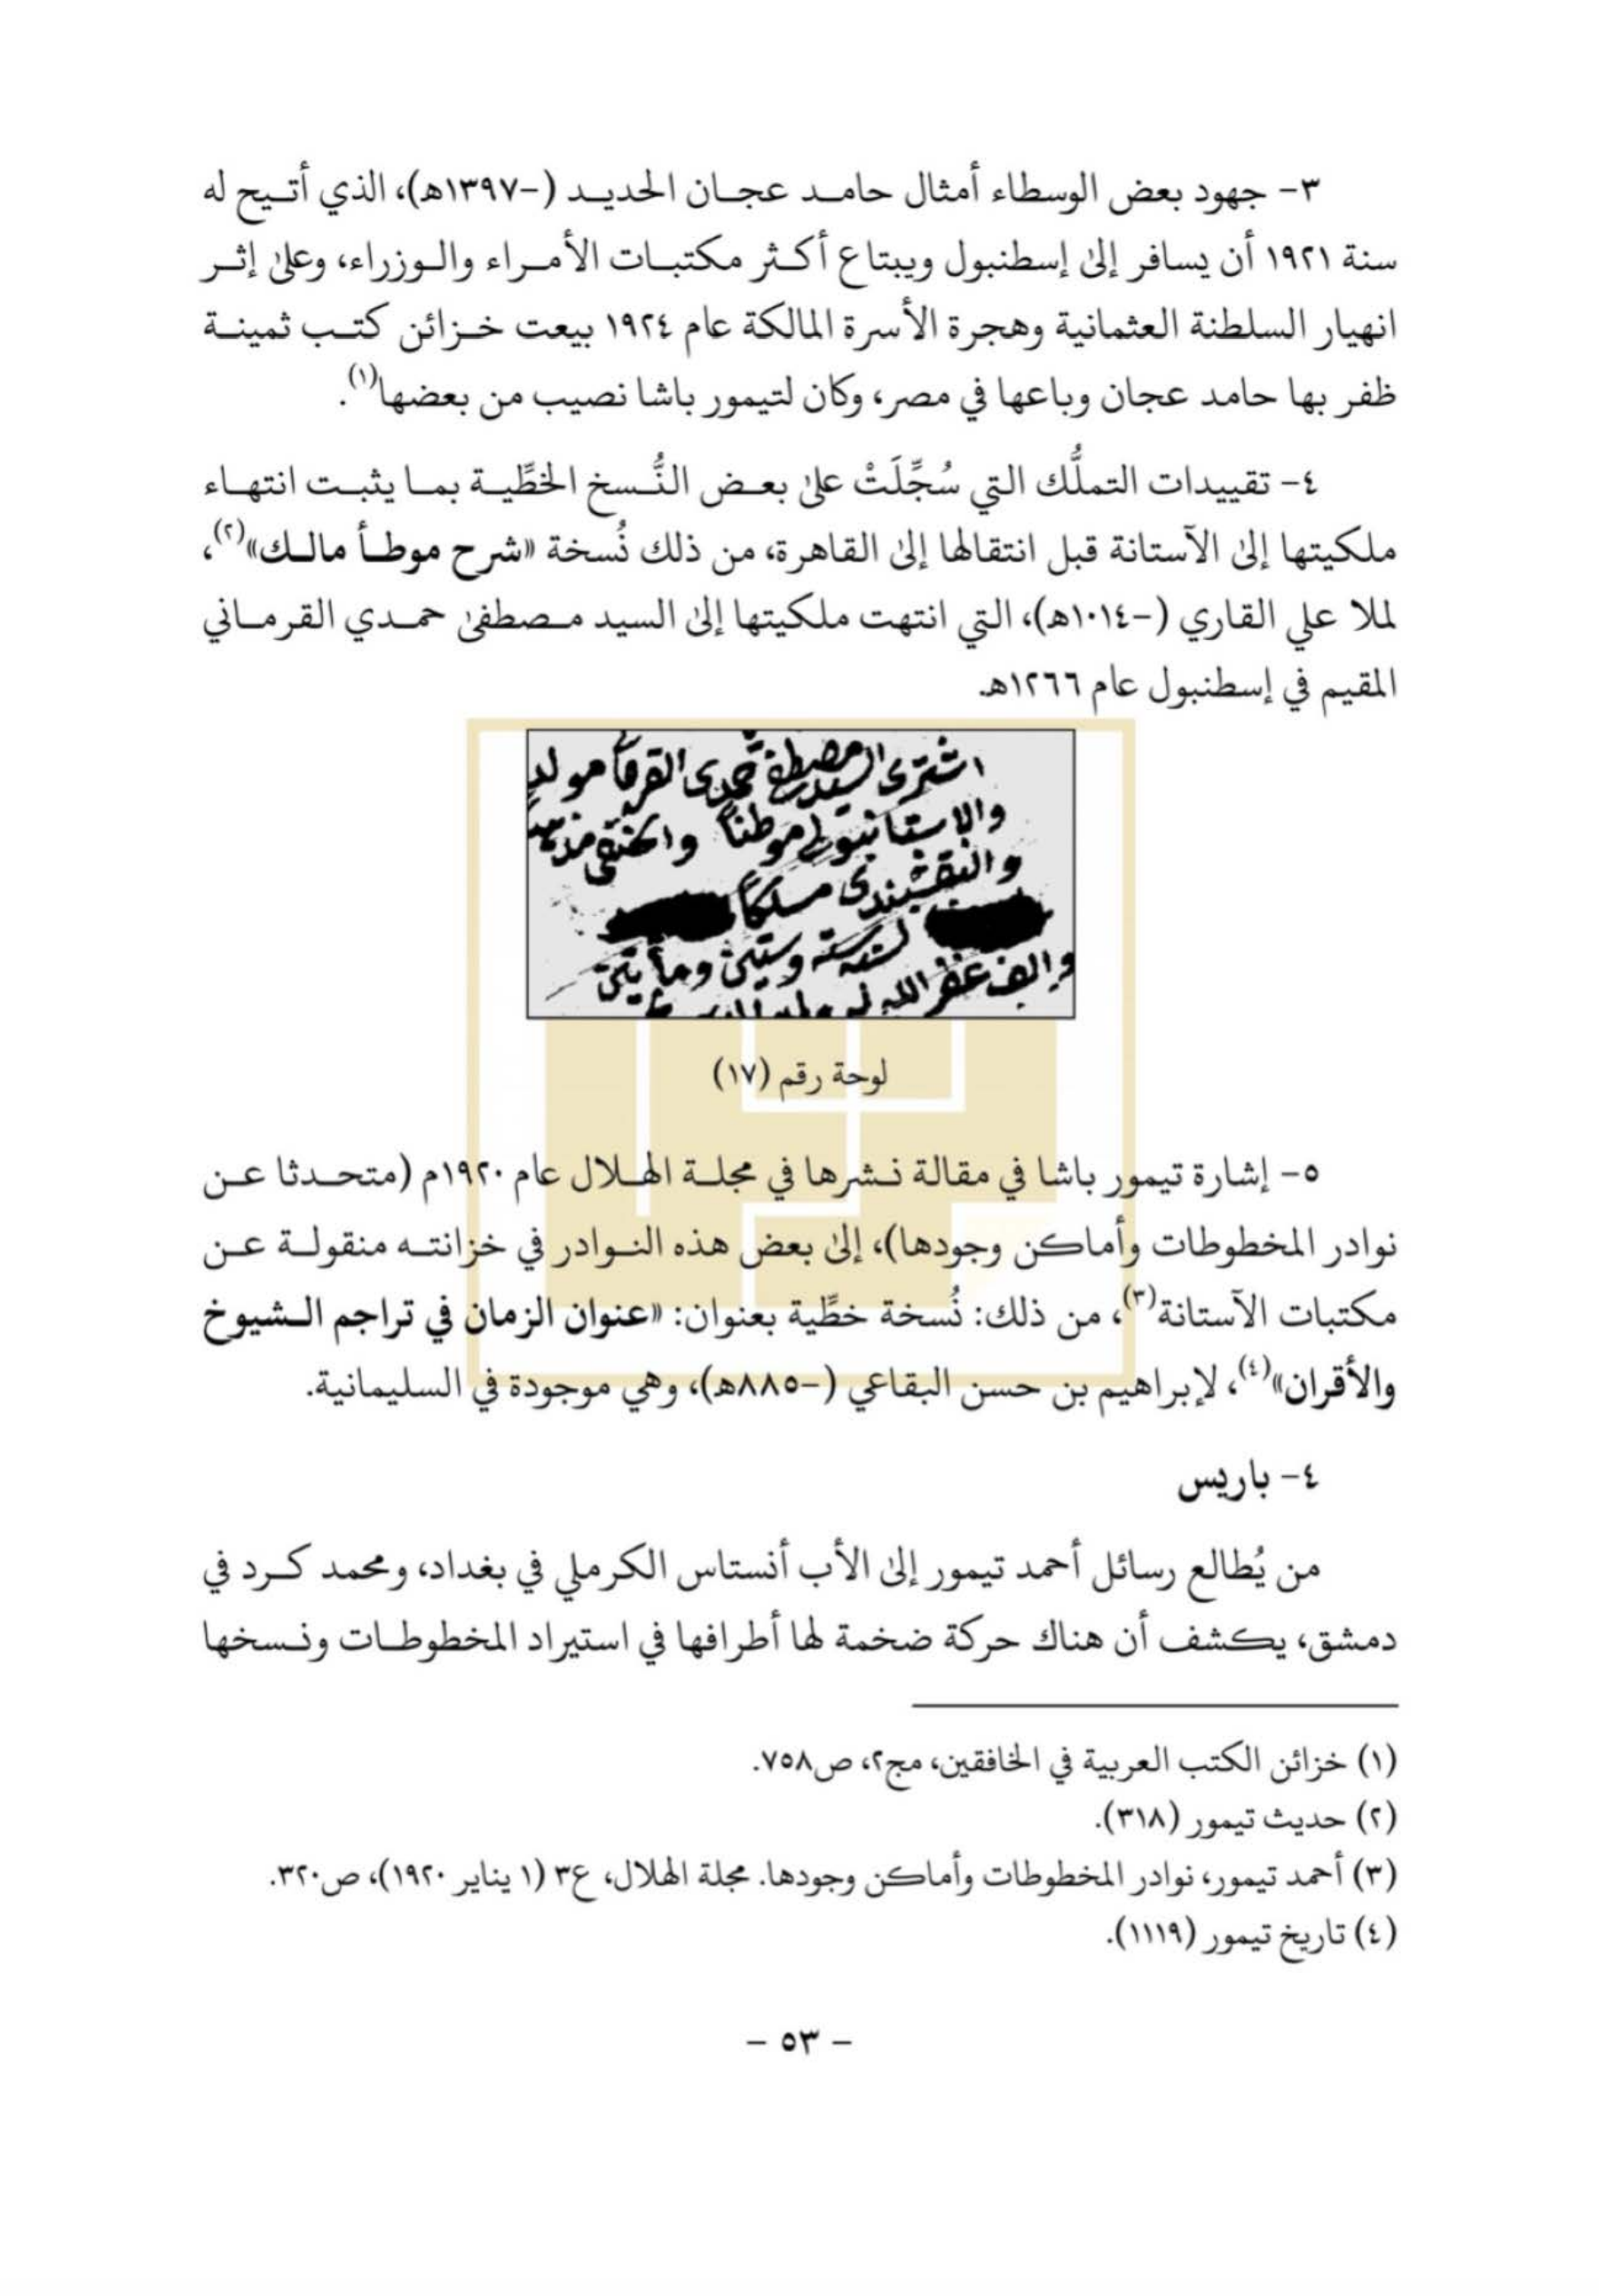 ٣- جهود بعض الوسطاء أمثال حامد عجان الحديد (-١٣٩٧ه)، الذي أتيح له
سنة ١٩٢١ أن يسافر إلى إسطنبول ويبتاع أكثر مكتبات الأمراء والوزراء، وعلى إثر
انهيار السلطنة العثمانية وهجرة الأسرة المالكة عام ١٩٢٤ بيعت خزائن كتب ثمينة
ظفر بها حامد عجان وباعها في مصر، وكان لتيمور باشا نصيب من بعضها(١).
٤- تقييدات التملُّك التي سُجِّلَتْ على بعض النُّسخ الخطِّية بما يثبت انتهاء
ملكيتها إلى الآستانة قبل انتقالها إلى القاهرة، من ذلك نُسخة «شرح موطأ مالك»(٢)،
لملا علي القاري (-١٠١٤ه)، التي انتهت ملكيتها إلى السيد مصطفى حمدي القرماني
المقيم في إسطنبول عام ١٢٦٦ه.
اشترى السيد مصطفى حمدى القرما مولدا
والاستانبولى موطنا والحنفى مذهبا
والنقشبندى مسلكا
لسنة ستة وستين ومأيتين
والف غفر الله له
لوحة رقم (١٧)
٥- إشارة تيمور باشا في مقالة نشرها في مجلة الهلال عام ١٩٢٠م (متحدثا عن
نوادر المخطوطات وأماكن وجودها)، إلى بعض هذه النوادر في خزانته منقولة عن
مكتبات الآستانة(٣)، من ذلك: نُسخة خطِّية بعنوان: «عنوان الزمان في تراجم الشيوخ
والأقران»(٤)، لإبراهيم بن حسن البقاعي (-٨٨٥ه)، وهي موجودة في السليمانية.
٤- باريس
من يُطالع رسائل أحمد تيمور إلى الأب أنستاس الكرملي في بغداد، ومحمد كرد في
دمشق، يكشف أن هناك حركة ضخمة لها أطرافها في استيراد المخطوطات ونسخها
(١) خزائن الكتب العربية في الخافقين، مج٢، ص٧٥٨.
(٢) حديث تيمور (٣١٨).
(٣) أحمد تيمور، نوادر المخطوطات وأماكن وجودها. مجلة الهلال، ع٣ (١ يناير ١٩٢٠)، ص٣٢٠.
(٤) تاريخ تيمور (١١١٩).
- ٥٣ -